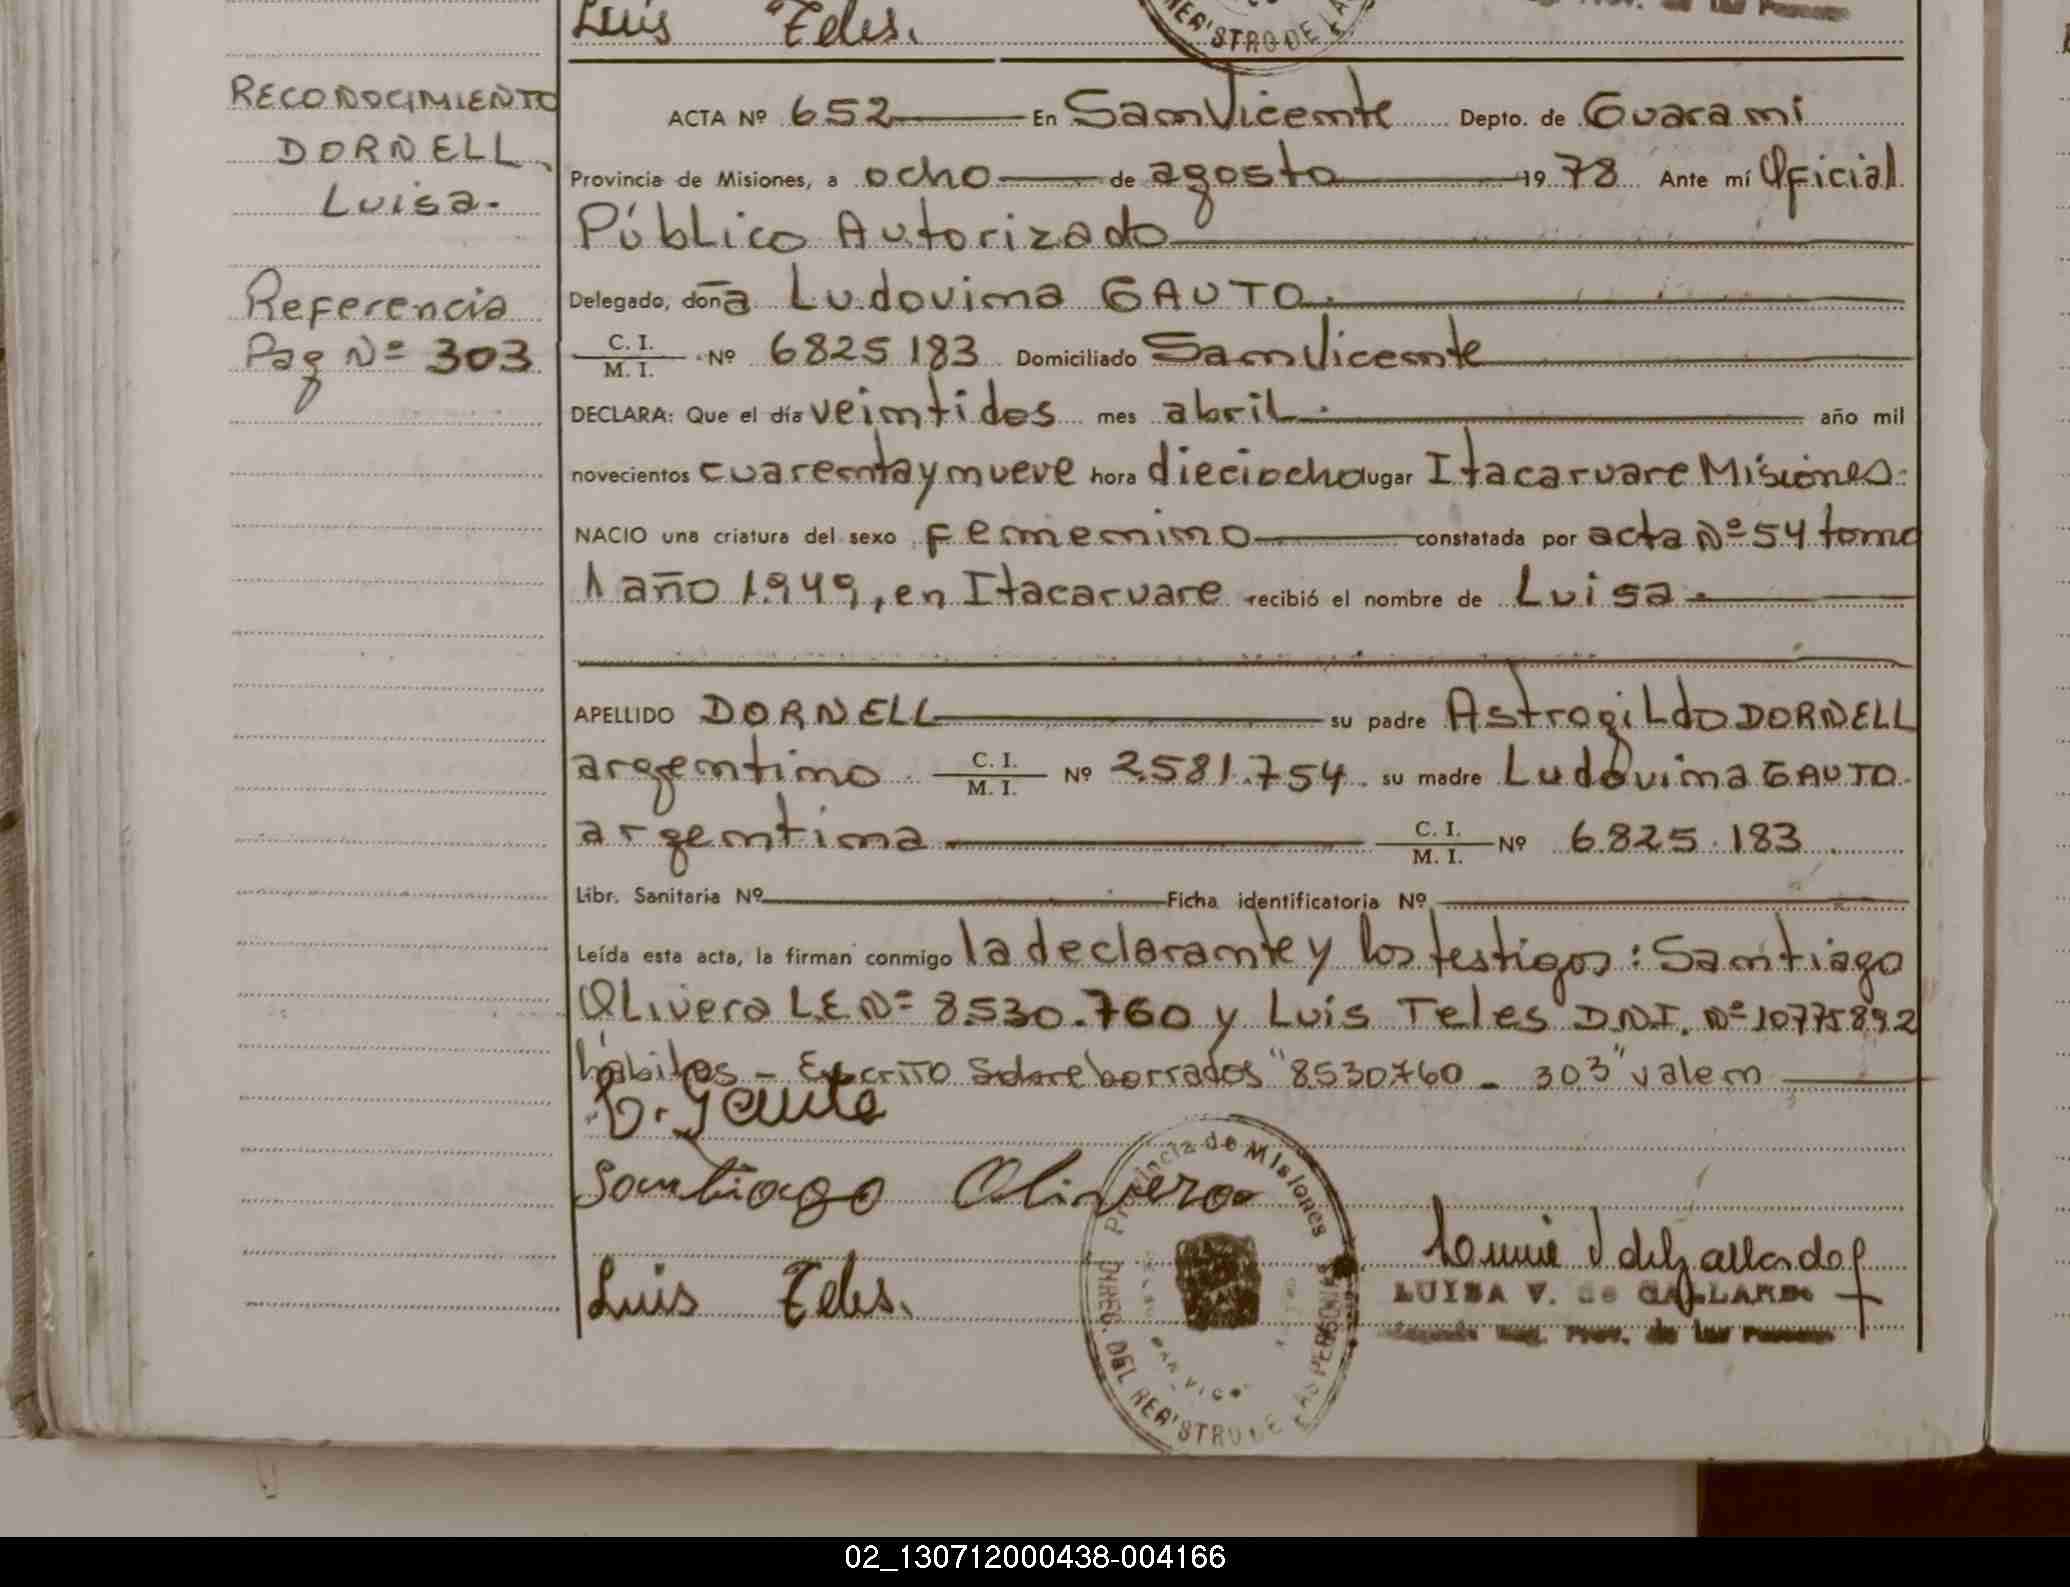 Luis Teles.
RECONOCIMIENTO
DORNELL
Luisa.
Referencia
Pag Nº 303
ACTA Nº 652 En San Vicente Depto. de Guaraní
Provincia de Misiones, a ocho de agosto 1978 Ante mí Oficial
Público Autorizado
Delegado, doña Ludovina GAUTO.
C. I. / M. I. Nº 6825183 Domiciliado San Vicente
DECLARA: Que el día veintidos mes abril. año mil
novecientos cuarenta y nueve hora dieciocho lugar Itacaruare Misiones.
NACIO una criatura del sexo femenino constatada por acta Nº 54 tomo
1 año 1949, en Itacaruare recibió el nombre de Luisa.
APELLIDO DORNELL su padre Astrogildo DORNELL
argentino C. I. / M. I. Nº 2581.754. su madre Ludovina GAUTO.
argentina C. I. / M. I. Nº 6.825.183
Libr. Sanitaria Nº Ficha identificatoria Nº
Leída esta acta, la firman conmigo la declarante y los testigos: Santiago
Olivera L.E. Nº 8.530.760 y Luis Teles D.N.I. Nº 10775892
hábiles - Escrito sobre borrados "8530760 - 303" valen
L. Gauto
Santiago Olivera
Luis Teles.
Provincia de Misiones
DIREC. DEL REGISTRO DE LAS PERSONAS
LUISA V. de GALLARDO
Prov. de las Personas
02_130712000438-004166